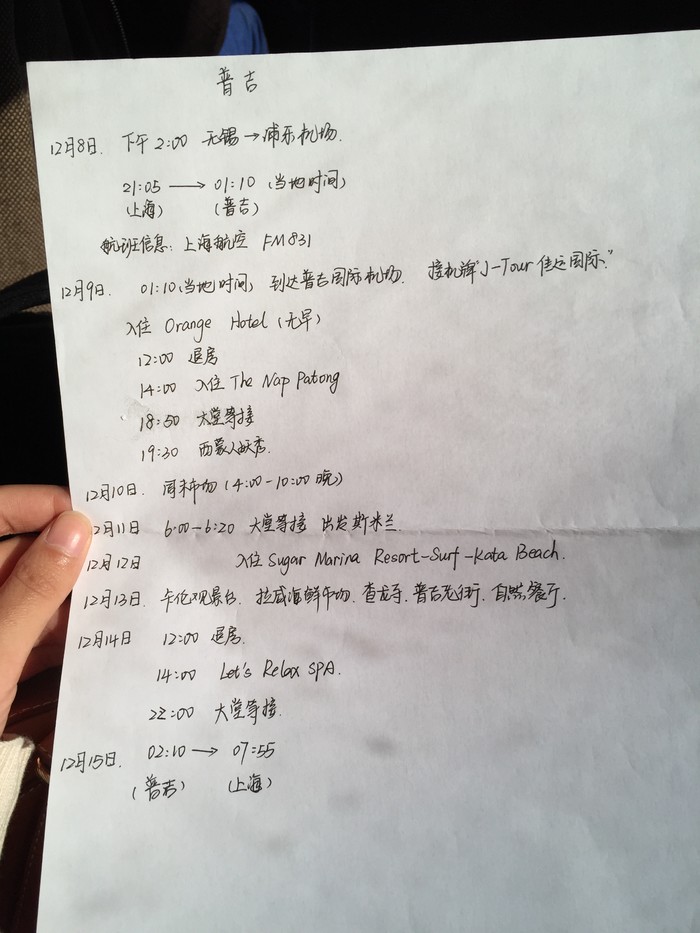 普吉
12月8日. 下午2:00 无锡→浦东机场.
21:05 → 01:10 (当地时间)
(上海) (普吉)
航班信息: 上海航空 FM831
12月9日. 01:10(当地时间) 到达普吉国际机场. 接机牌"J-Tour 佳运国际."
入住 Orange Hotel (无早)
12:00 退房
14:00 入住 The Nap Patong
18:50 大堂等接
19:30 西蒙人妖秀.
12月10日. 周末市场 (4:00-10:00 晚)
12月11日 6:00-6:20 大堂等接 出发斯米兰
12月12日 入住 Sugar Marina Resort-Surf-Kata Beach.
12月13日. 卡伦观景台. 拉威海鲜市场. 查龙寺. 普吉老街. 自然餐厅.
12月14日 12:00 退房.
14:00 Let's Relax SPA.
22:00 大堂等接.
12月15日. 02:10 → 07:55
(普吉) (上海)